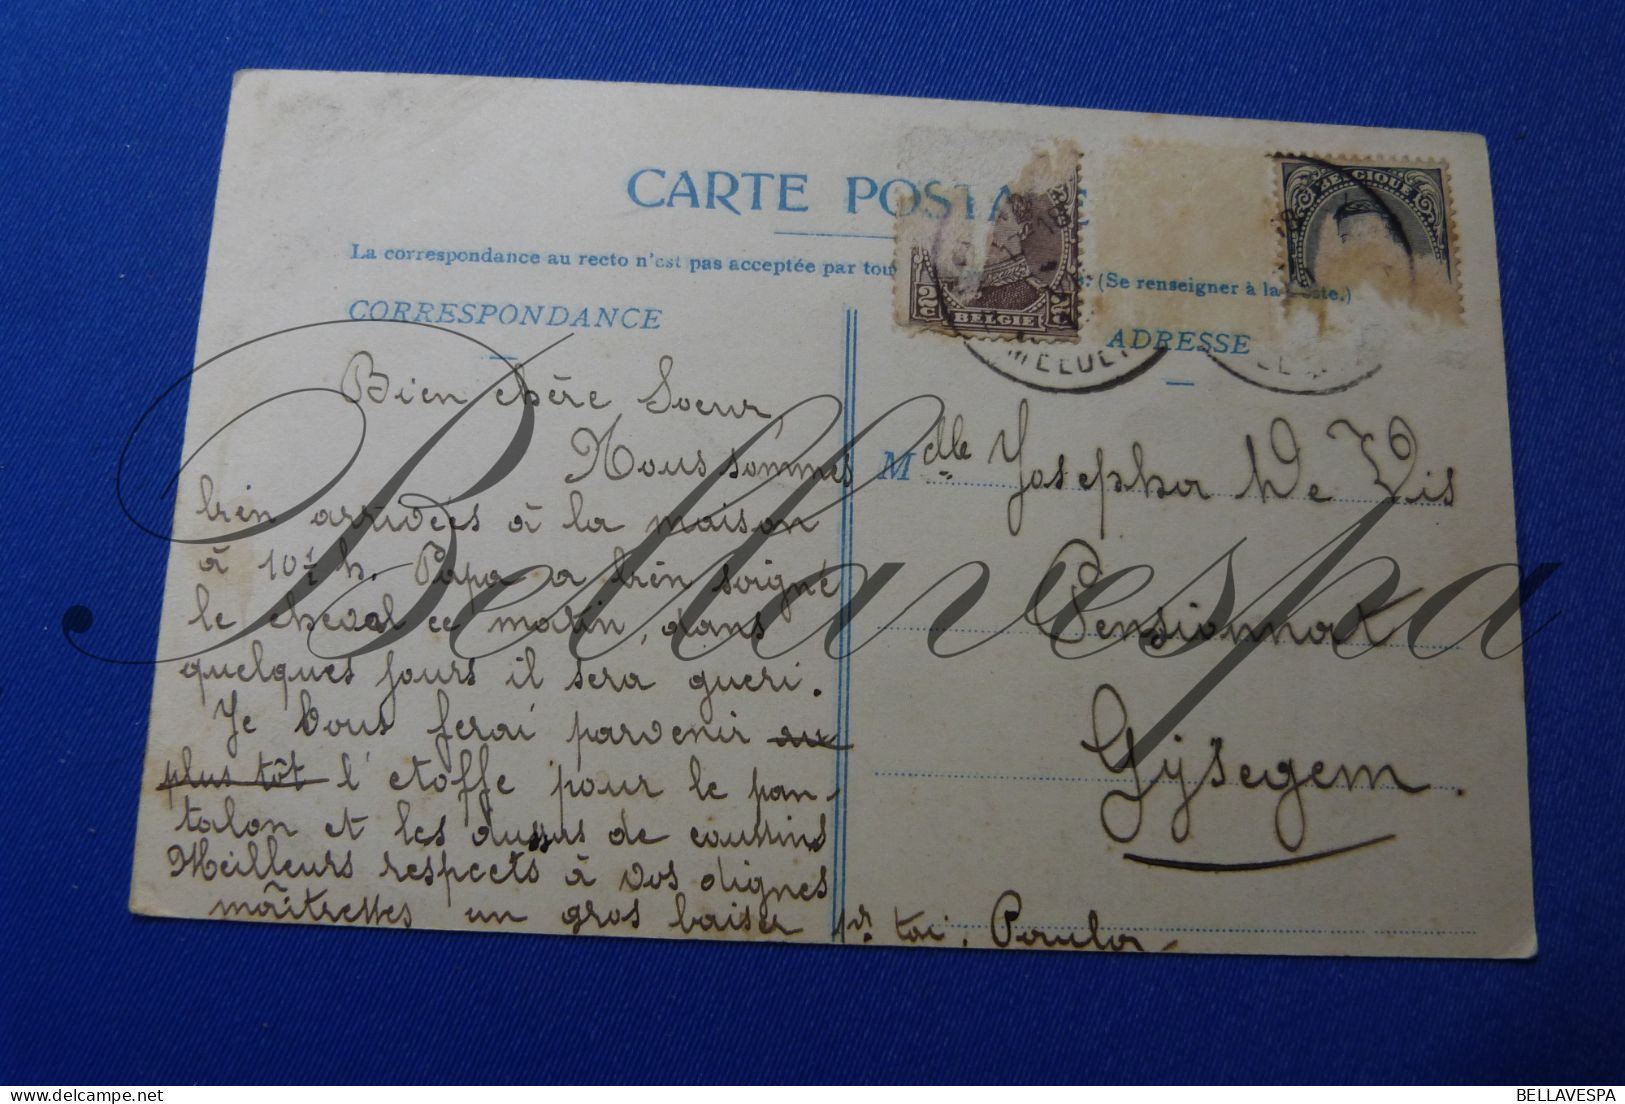 CARTE POSTA E
La correspondance au recto n'est pas acceptée par tou
s. (Se renseigner à la Poste.)
CORRESPONDANCE
ADRESSE
BELGIQUE
2 BELGIE 2
Bien chère Soeur,
Nous sommes
bien arrivées à la maison
à 10½ h. Papa a bien soigné
le cheval ce matin, dans
quelques jours il sera gueri.
Je vous ferai parvenir au
plus tôt l'etoffe pour le pan-
talon et les dessus de coussins
Meilleurs respects à vos dignes
maîtresses un gros baiser pr toi. Paula
Mdlle Josepha De Vis
Pensionnat
Gijsegem.
Bellavespa
BELLAVESPA